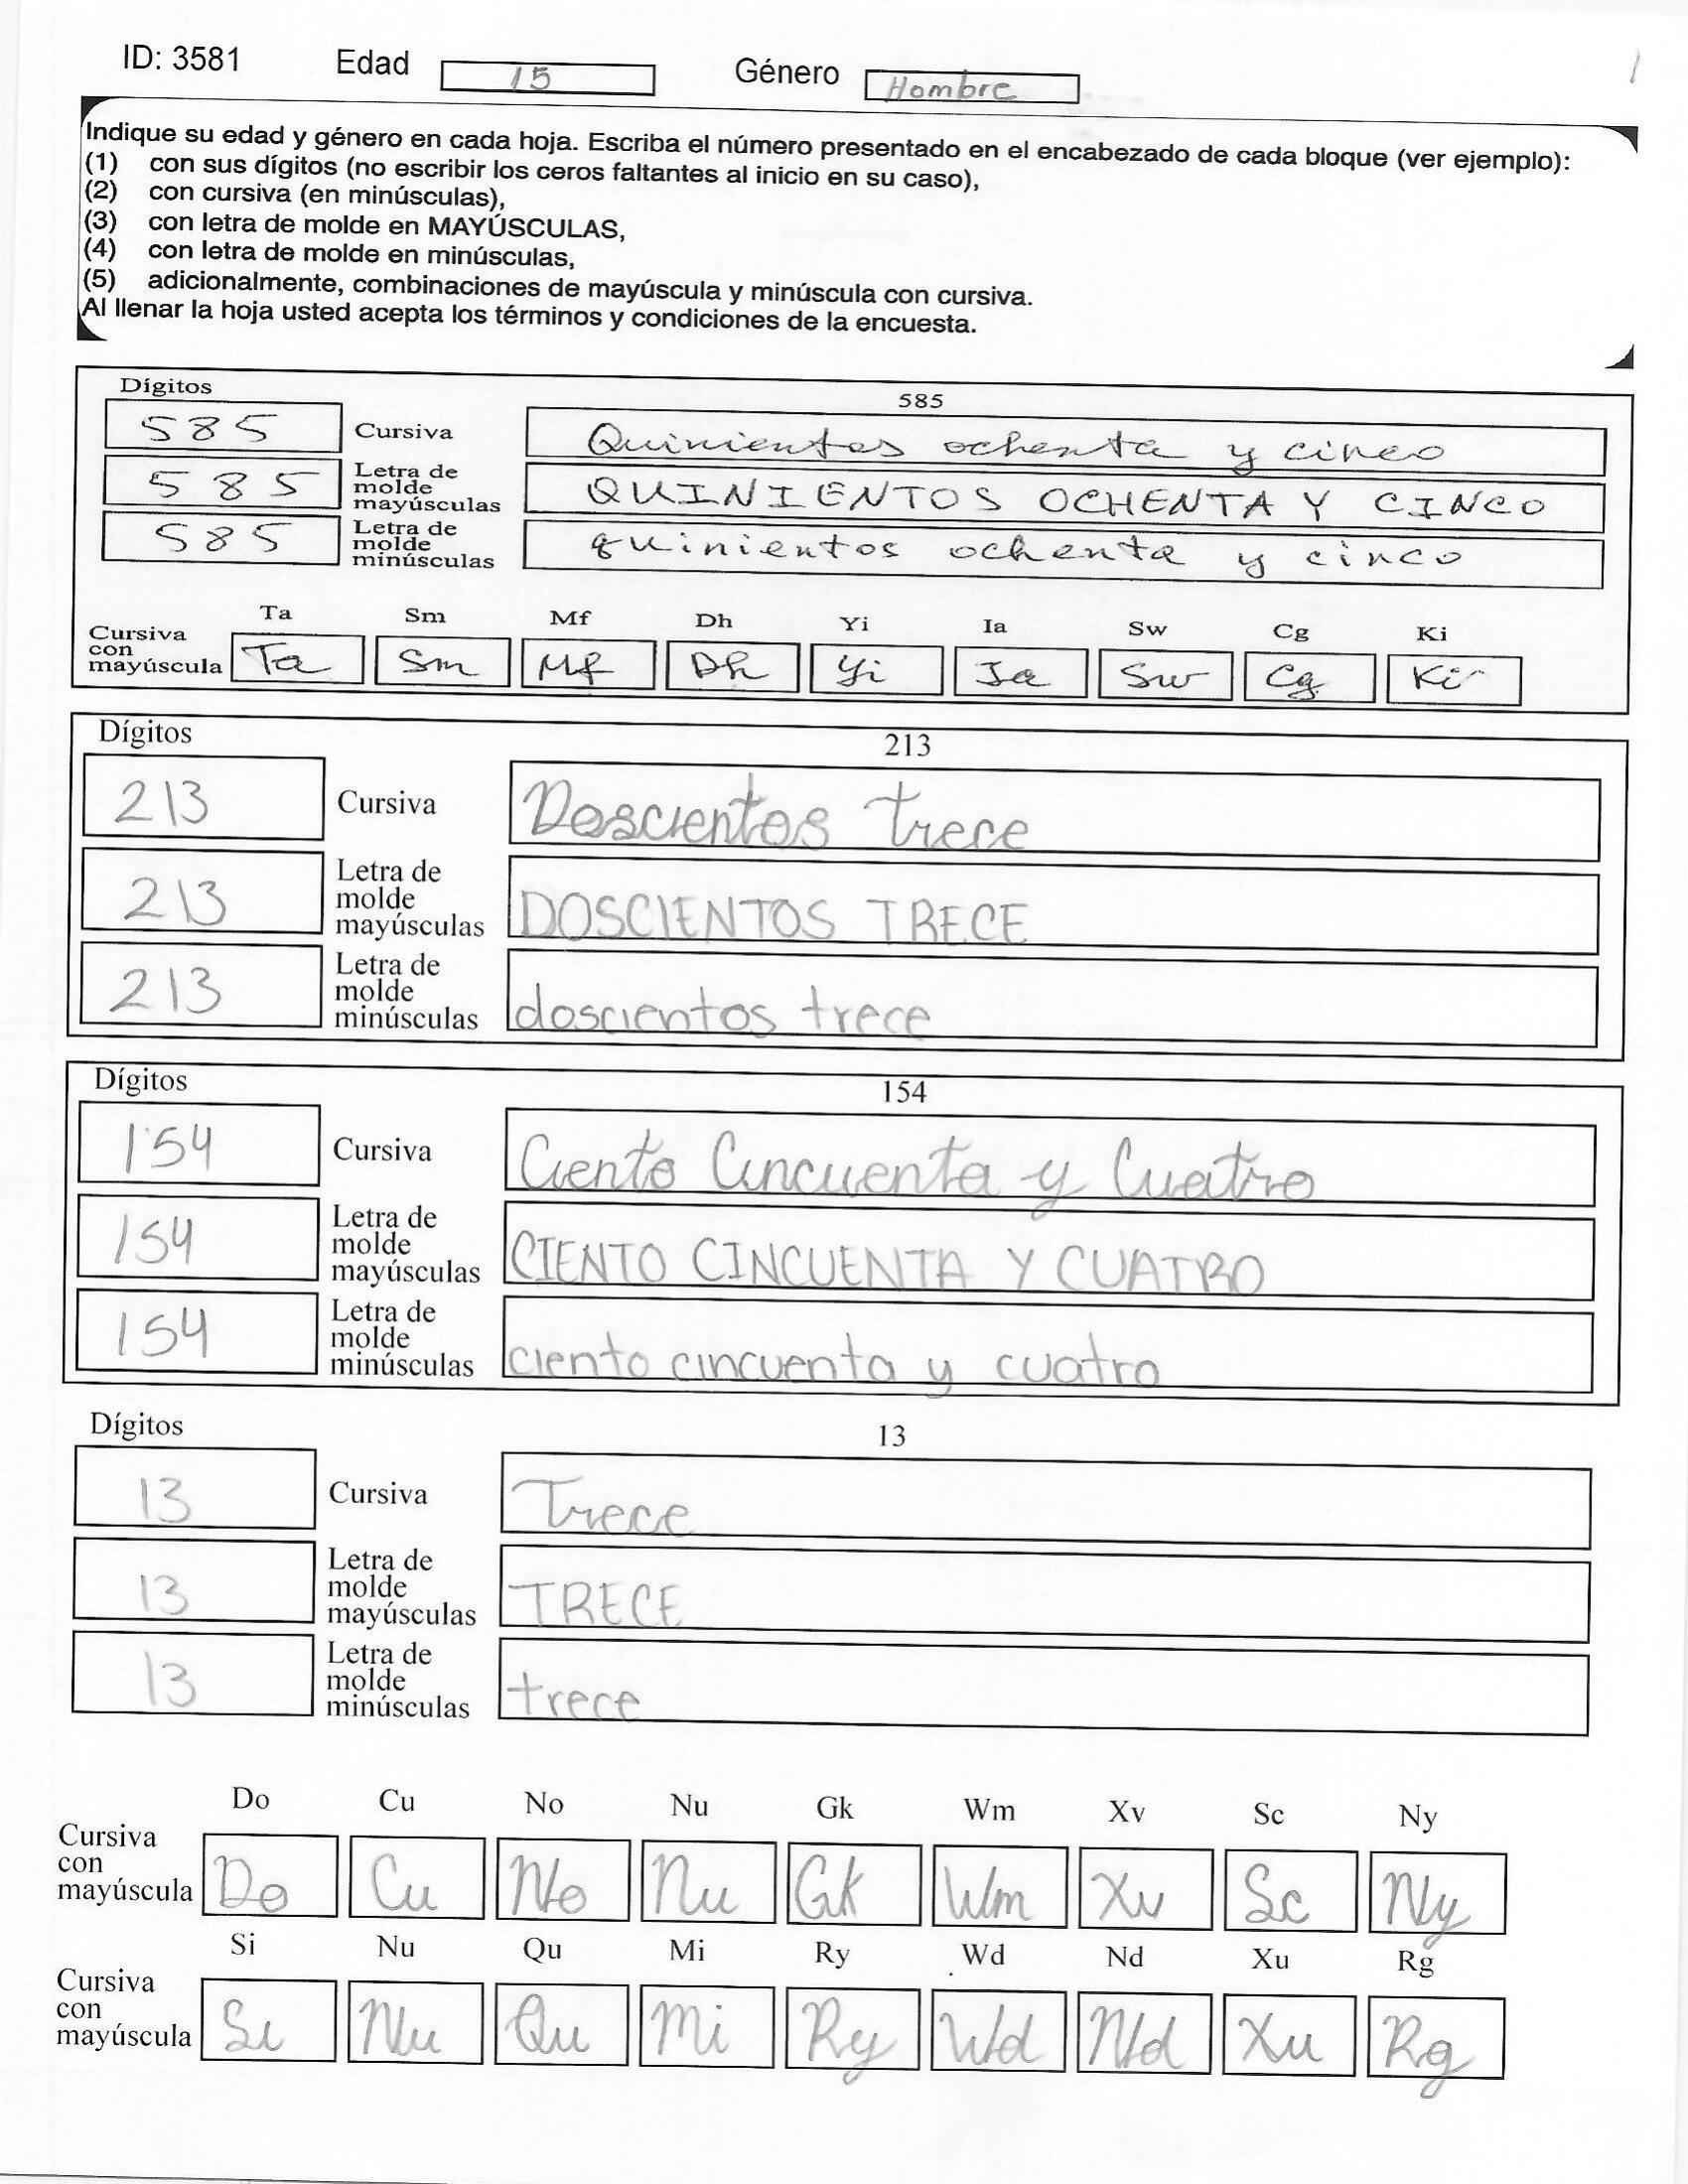 ID: 3581 Edad 15 Género Hombre 1
Indique su edad y género en cada hoja. Escriba el número presentado en el encabezado de cada bloque (ver ejemplo):
(1) con sus dígitos (no escribir los ceros faltantes al inicio en su caso),
(2) con cursiva (en minúsculas),
(3) con letra de molde en MAYÚSCULAS,
(4) con letra de molde en minúsculas,
(5) adicionalmente, combinaciones de mayúscula y minúscula con cursiva.
Al llenar la hoja usted acepta los términos y condiciones de la encuesta.
Dígitos 585
585 Cursiva Quinientos ochenta y cinco
585 Letra de molde mayúsculas QUINIENTOS OCHENTA Y CINCO
585 Letra de molde minúsculas quinientos ochenta y cinco
Ta Sm Mf Dh Yi Ia Sw Cg Ki
Cursiva con mayúscula Ta Sm Mf Dh Yi Ia Sw Cg Ki
Dígitos 213
213 Cursiva Doscientos trece
213 Letra de molde mayúsculas DOSCIENTOS TRECE
213 Letra de molde minúsculas doscientos trece
Dígitos 154
154 Cursiva Ciento Cincuenta y Cuatro
154 Letra de molde mayúsculas CIENTO CINCUENTA Y CUATRO
154 Letra de molde minúsculas ciento cincuenta y cuatro
Dígitos 13
13 Cursiva Trece
13 Letra de molde mayúsculas TRECE
13 Letra de molde minúsculas trece
Do Cu No Nu Gk Wm Xv Sc Ny
Cursiva con mayúscula Do Cu No Nu Gk Wm Xv Sc Ny
Si Nu Qu Mi Ry Wd Nd Xu Rg
Cursiva con mayúscula Si Nu Qu Mi Ry Wd Nd Xu Rg